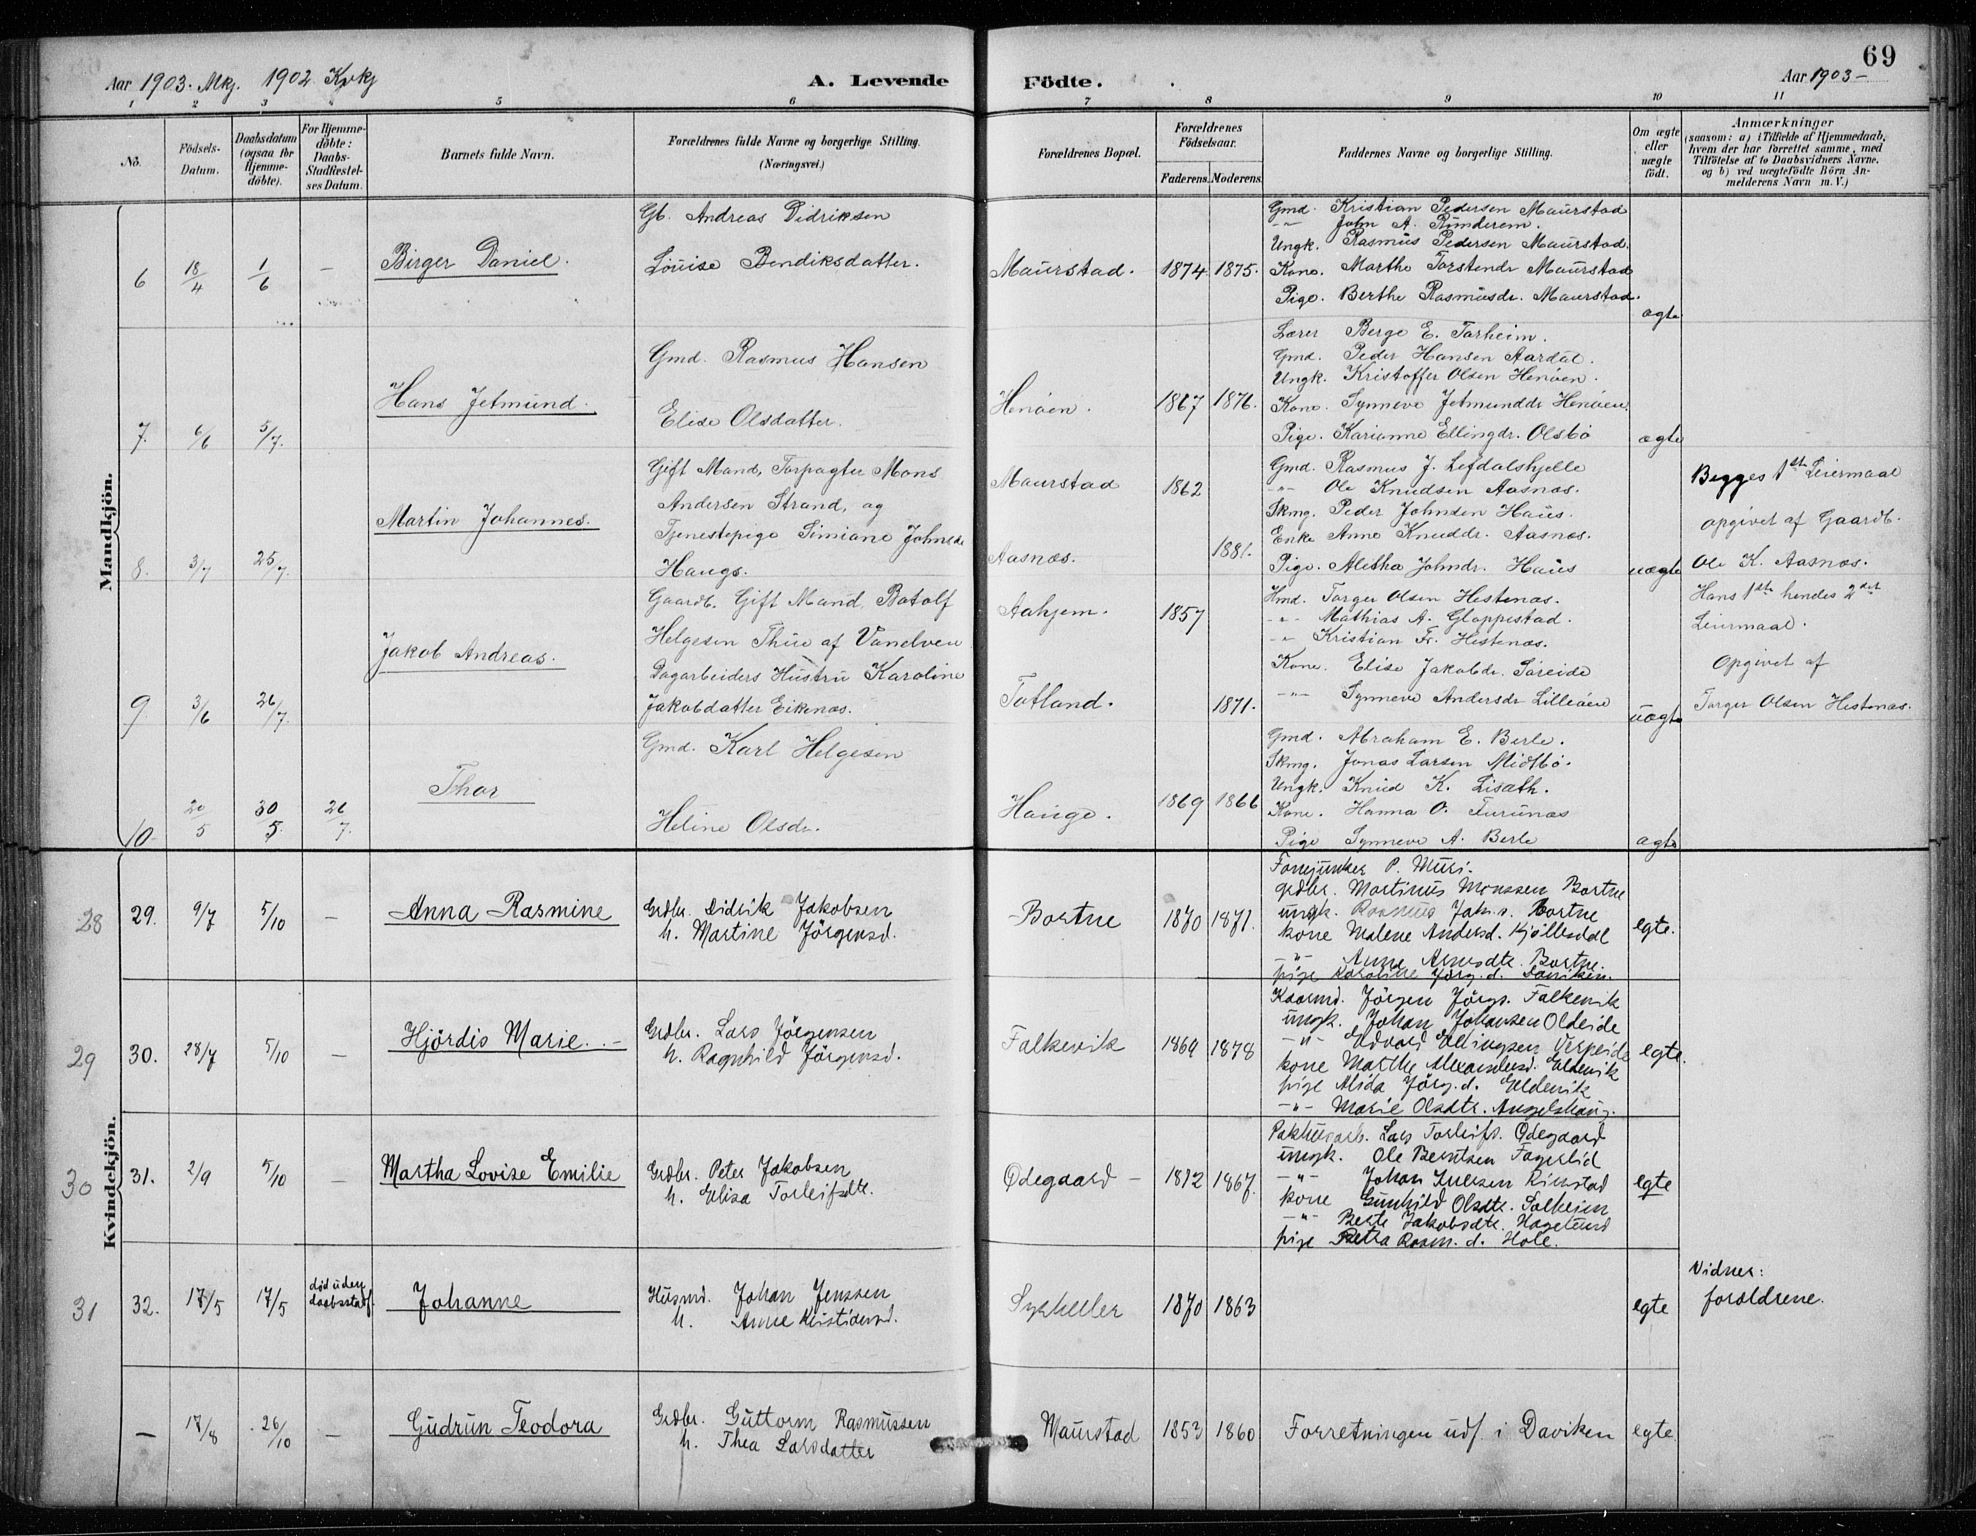 69
Aar 1903. Mkj. 1902 Kvkj
A. Levende Födte.
Aar 1903 –
1 2 3 5 6 7 8 9 10 11
No.
Födsels-Datum.
Daabsdatum (ogsaa for Hjemme-döbte).
For Hjemme-döbte: Daabs-Stadfæstel-ses Datum.
Barnets fulde Navn.
Forældrenes fulde Navne og borgerlige Stilling. (Næringsvei.)
Forældrenes Bopæl.
Forældrenes Födselsaar.
Faderens. Moderens.
Faddernes Navne og borgerlige Stilling.
Om ægte eller uægte födt.
Anmærkninger
(saasom: a) i Tilfælde af Hjemmedaab,
hvem der har forrettet samme, med
Tilföielse af to Daabsvidners Navne,
og b) ved uægtefödte Börn An-
melderens Navn m. V.)
Mandkjön.
6 18/4 1/6 – Birger Daniel.
Gb. Andreas Didriksen
Louise Bendiksdatter.
Maurstad. 1874 1875.
Gmd. Kristian Pedersen Maurstad
-"- John A. Runderem.
Ungk. Rasmus Pedersen Maurstad.
Kone. Marthe Torstendr Maurstad
Pige. Berthe Rasmusdr. Maurstad.
ægte
7. 6/6 5/7. Hans Jetmund.
Gmd. Rasmus Hansen
Elise Olsdatter.
Henöen. 1867 1876.
Lærer Berge E. Torheim.
Gmd. Peder Hansen Aardal.
Ungk. Kristoffer Olsen Henöen.
Kone. Synneve Jetmunddr Henöen.
Pige. Karianne Ellingdr. Olsbö
ægte
8. 3/7 25/7. Martin Johannes.
Gift Mand, Forpagter Mons
Andersen Strand, og
Tjenestepige Simiane Johnsdr
Haugs.
Maurstad 1862
Aasnæs. 1881.
Gmd. Rasmus J. Lefdalshjelle
-"- Ole Knudsen Aasnæs.
Skmg. Peder Johnsen Haus.
Enke Anne Knuddr. Aasnæs.
Pige. Alethe Johndr. Haus
uægte
Begges 1ste Leiermaal
opgivet af Gaardb.
Ole K. Aasnæs.
9. 3/6 26/7. Jakob Andreas.
Gaardb. Gift Mand, Botolf
Helgesen Thue af Vanelven
Dagarbeiders Hustru Karoline
Jakobdatter Eikenæs.
Aahjem. 1857
Totland. 1871.
Hmd. Torger Olsen Hestenæs.
-"- Mathias A. Gloppestad.
-"- Kristian Fr. Hestenæs.
Kone. Elise Jakobdr. Söreide
-"- Synneve Andersdr Lilleöen
uægte
Hans 1ste hendes 2det
Leiermaal.
Opgivet af
Torger Olsen Hestenæs.
10. 20/5 30/5. 26/7. Thor
Gmd. Karl Helgesen
Heline Olsdr.
Hauge. 1869 1866
Gmd. Abraham E. Berle.
Skmg. Jonas Larsen Midtbö.
Ungk. Knud K. Lisæth.
Kone. Hanna O. Furunæs
Pige Synneve A. Berle
ægte
Kvindekjön.
28 29. 9/7 5/10 – Anna Rasmine
Grdbr. Didrik Jakobsen
h. Martine Jörgensd.
Bortne 1870 1871.
Fanejunker P. Muri.
grdbr. Martinus Monssen Bortne
ungk. Rasmus Jak.s. Bortne
kone Malene Andersd. Kjöllesdal
-"- Anne Arnesdtr. Bortne
pige Karoline Jörg.d. Daviken.
egte.
29 30. 28/7 5/10 – Hjördis Marie. –
Grdbr. Lars Jörgensen
h. Ragnhild Jörgensd.
Falkevik 1869 1878
Kaarmd. Jörgen Jörgs. Falkevik
ungk. Johan Johansen Oldeide
-"- Edvard Ellingsen Verpeide
kone Marthe Alexandersd. Eldevik
pige Alida Jörg.d. Eldevik
-"- Marie Olsdtr. Angelshaug.
egte.
30 31. 2/9 5/10 – Martha Lovise Emilie
Grdbr. Peter Jakobsen
h. Elisa Torleifsdtr.
Ødegaard – 1872 1867.
Pakhusarb. Lars Torleifs. Ødegaard
ungk. Ole Berntsen Fagerlid
-"- Johan Rimstad
kone Gunhild Olsdtr. Solheim
-"- Berte Jakobsdtr. Hagelund
pige Petra Rasm.d. Hole.
egte
31 32. 17/5 17/5 död uden daabsstadf. Johanne
Husmd. Johan Jenssen
h. Anne Kristidensd.
1870 1863
egte
Vidner:
forældrene.
– 17/8 26/10 – Gudrun Teodora
Grdbr. Guttorm Rasmussen
h. Thea Larsdatter
Maurstad 1853 1860
Forretningen udf. i Daviken
egte